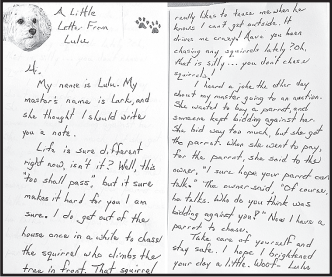 A Little
Letter From
Lulu
Hi,
My name is Lulu. My
master's name is Lark, and
she thought I should write
you a note.
Life is sure different
right now, isn't it? Well, this
"too shall pass," but it sure
makes it hard for you I am
sure. I do get out of the
house once in a while to chase
the squirrel who climbs the
tree in front. That squirrel
really likes to tease me when he
knows I can't get outside. It
drives me crazy! Have you been
chasing any squirrels lately? Oh,
that is silly... you don't chase
squirrels!
I heard a joke the other day
about my master going to an auction.
She wanted to buy a parrot, and
someone kept bidding against her.
She bid way too much, but she got
the parrot. When she went to pay
for the parrot, she said to the
owner, "I sure hope your parrot can
talk." The owner said, "Of course,
he talks. Who do you think was
bidding against you?" Now I have a
parrot to chase.
Take care of yourself and
stay safe. I hope I brightened
your day a little. Woof- Lulu